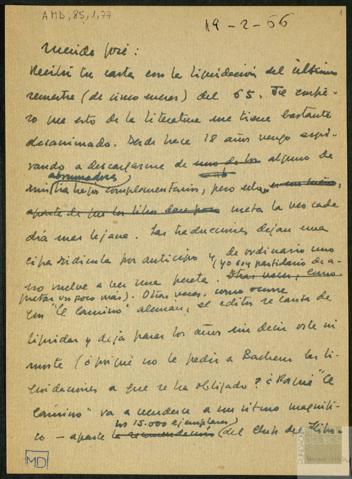 AMD, 85, 1, 77
19-2-66
Querido José:
Recibí tu carta con la liquidación del último
semestre (de cinco meses) del 65. Te
que esto de la literatura me tiene bastante
desanimado. Desde hace 18 años vengo aspi-
rando a descargarme de uno de los alguno de
abrumadores
mis trabajos complementarios, pero esta
meta la veo cada
día más lejana. Las traducciones dejan una
cifra ridícula por anticipos y, de ordinario uno
no vuelve a ver una peseta. (yo soy partidario de a-
Otras veces, como
poco más). Otras veces, como ocurre
con "El Camino" alemán, el editor se cansa de
liquidar y deja pasar los años sin decir oste ni
moste (¿por qué no le pedís a Bachem las li-
quidaciones a que se ha obligado? ¿Por qué "El
Camino" va a venderse a un ritmo magnífi-
los 15.000 ejemplares
co - aparte la recomendación (del Club del Libro
MD